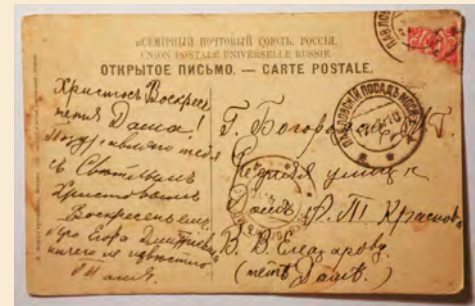 ВСЕМІРНЫЙ ПОЧТОВЫЙ СОЮЗЪ. РОССІЯ.
UNION POSTALE UNIVERSELLE RUSSIE.
ОТКРЫТОЕ ПИСЬМО. — CARTE POSTALE.
Христосъ Воскресе
тетя Даша!
Поздравляю тебя
съ Свѣтлымъ
Христовымъ
Воскресеньемъ.
Про
ничего не извѣстно
ПАВЛОВСКІЙ ПОСАДЪ МОСК.
Г. Богородскъ М. Г.
улица
Домъ Краснова
В. В. Елеазарову
(тетѣ Дашѣ)